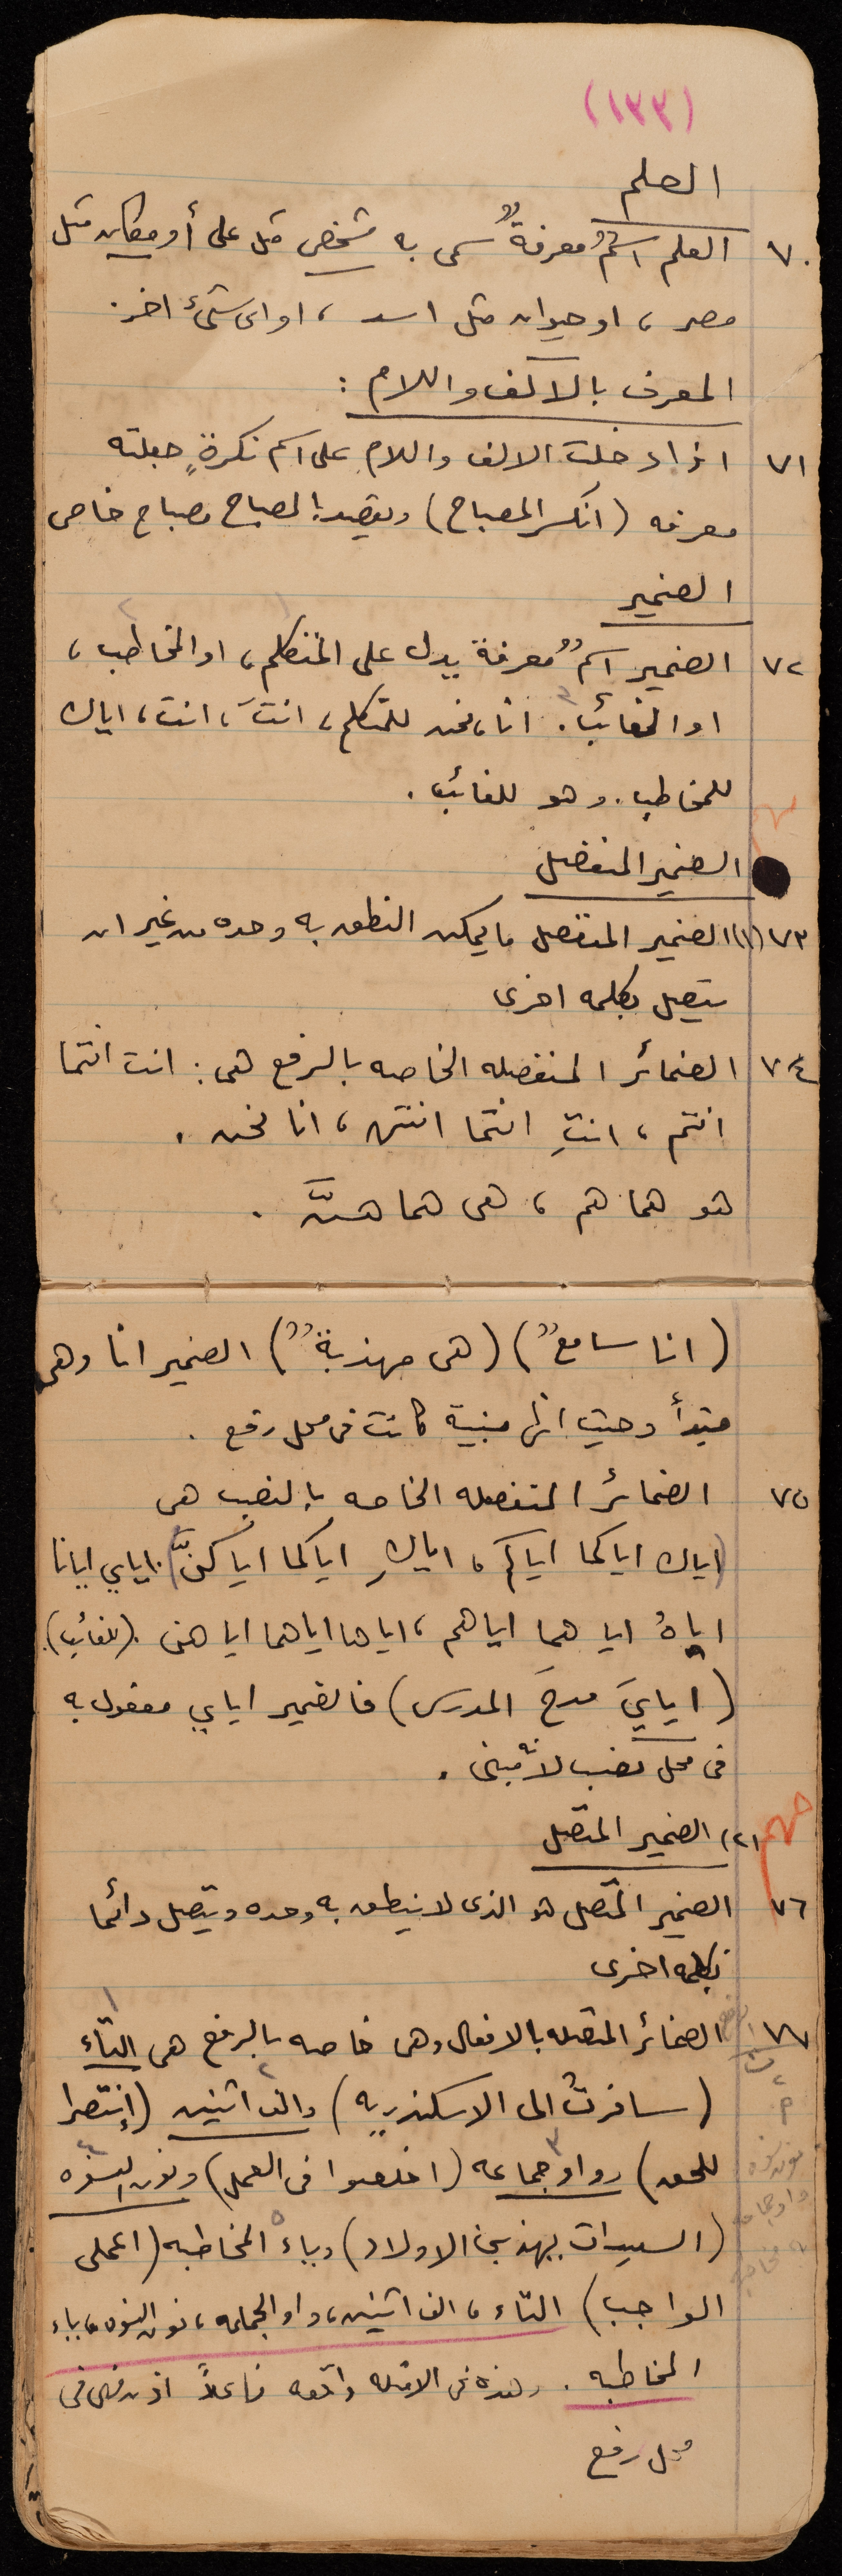 (١٣٣)
العلم
٧٠ العلم اسمٌ معرفةٌ سمى به شخص مثل على أو مكان مثل
مصر ، او حيوان مثل اسد ، او اى شئ اخر .
المعرف بالالف واللام :
٧١ اذا دخلت الالف واللام على اسم نكرةٍ جعلته
معرفه (انكسر المصباح) ويقصد بالمصباح مصباح خاص
الضمير
١ ٢
٧٢ الضمير اسمٌ معرفة يدل على المتكلم ، او المخاطب ،
او الغائب ٣ . انا ، نحن للمتكلم ، انتَ ، انت ، اياك
للمخاطب . وهو للغائب .
الضمير المنفصل
٧٣ (١) الضمير المنفصل ما يمكن النطق به وحده من غير ان
يتصل بكلمه اخرى
٧٤ الضمائر المنفصله الخاصه بالرفع هى : انت انتما
انتم ، انتِ انتما انتن ، انا نحن .
هو هما هم ، هى هما هنَّ .
(انا سامعٌ) (هى مهذبةٌ) الضمير انا وهى
مبتدأ وحيث انها مبنية كانت فى محل رفع .
٧٥ الضمائر المنفصله الخاصه بالنصب هى
(اياك اياكما اياكم ، اياكِ اياكما اياكنَّ) . اياي ايانا
اياهُ اياهما اياهم ، اياها اياهما اياهن . (للغائب) .
(ايايَ مدحَ المدرس) فالضمير اياي مفعول به
فى محل نصب لانه مبنى .
(٢) الضمير المتصل
مهم
٧٦ الضمير المتصل هو الذى لا ينطق به وحده ويتصل دائما
بكلمه اخرى
١
٧٧ الضمائر المتصله بالافعال وهى خاصه بالرفع هى التاء
(سافرتُ الى الاسكندريه) والف اثنين ٢ (إنتصرا
للحق) وواو جماعه ٣ (اخلصوا فى العمل) ونون النسوه ٤
(السيدات يهذبن الاولاد) وياء ٥ المخاطبه (اعملى
الواجب) التاء ، الف اثنين ، واو الجماعه ، نون النسوه ، ياء
المخاطبه . وهذه فى الامثله واقعه فاعلاً اذن فهى فى
محل رفع
نون نسوه
واو جماعه